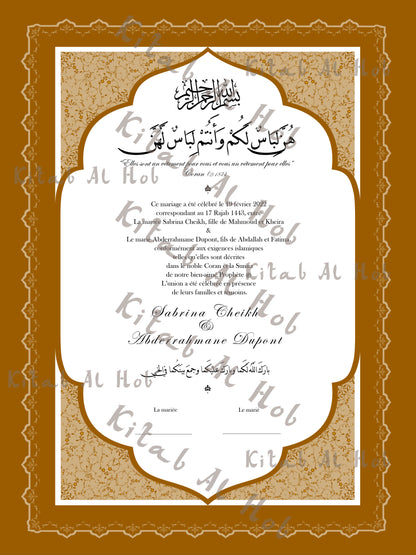 بسم الله الرحمن الرحيم
هُنَّ لِبَاسٌ لَكُمْ وَأَنْتُمْ لِبَاسٌ لَهُنَّ
"Elles sont un vêtement pour vous et vous un vêtement pour elles"
Coran
Ce mariage a été célébré le 19 février 2022
correspondant au 17 Rajab 1443, entre
La mariée Sabrina Cheikh, fille de Mahmoud et Kheira
&
Le marié Abderrahmane Dupont, fils de Abdallah et Fatima,
conformément aux exigences islamiques
telles qu'elles sont décrites
dans le noble Coran et la Sunna
de notre bien-aimé Prophète ﷺ
L'union a été célébrée en présence
de leurs familles et témoins.
Sabrina Cheikh
&
Abderrahmane Dupont
بارك الله لكما وبارك عليكما وجمع بينكما في الخير
La mariée
Le marié
Kitab Al Hob
Kitab Al Hob
Kitab Al Hob
Kitab Al Hob
Kitab Al Hob
Kitab Al Hob
Kitab Al Hob